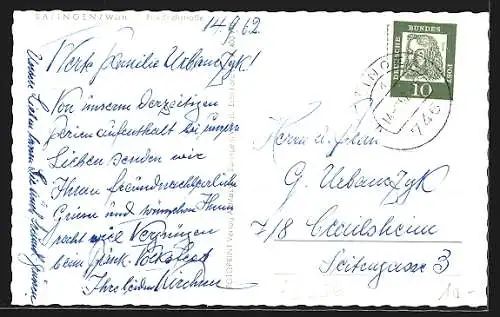 BALINGEN/Württ. Friedrichstraße
14.9.62
Werte Familie Urbanczyk!
Von unserem derzeitigen
Ferienaufenthalt bei unseren
Lieben senden wir
Ihnen freundnachbarliche
Grüsse und wünschen Ihnen
Recht viel Vergnügen
beim fränk. Volksfest
Ihre beiden
Unsere Lieben lassen Sie auch herzl. grüssen
DEUTSCHE BUNDESPOST
10
746
Herrn u. Frau
G. Urbanczyk
718 Crailsheim
Seitengasse 3
10.-